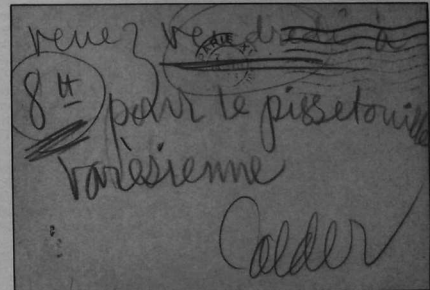 venez vendredi à
PARIS XV
8H pour le pissetouille
Varèsienne
Calder